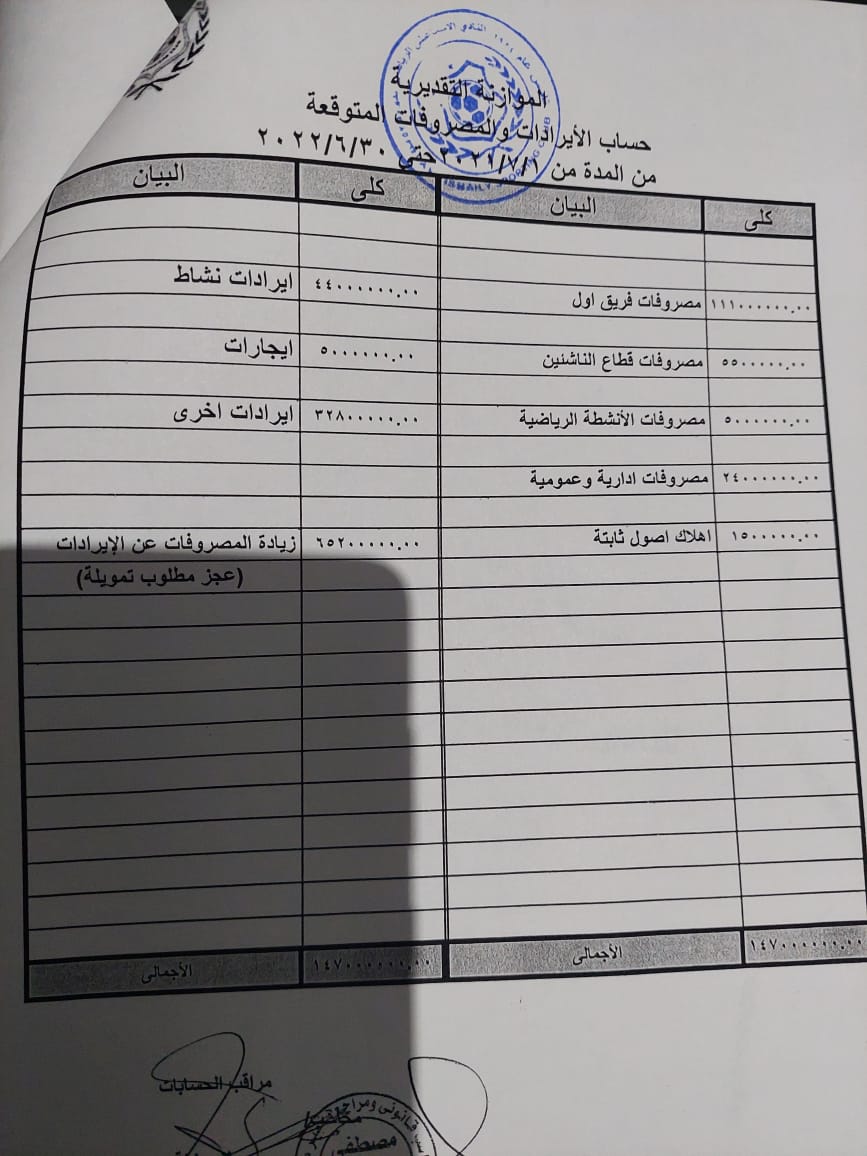 الموازنة التقديرية
حساب الأيرادات والمصروفات المتوقعة
من المدة من ٢٠٢١/٧/١ حتى ٢٠٢٢/٦/٣٠
ISMAILY SPORTING CLUB
كلى البيان كلى البيان
١١١٠٠٠٠٠٠.٠٠ مصروفات فريق اول ٤٤٠٠٠٠٠٠.٠٠ ايرادات نشاط
٥٥٠٠٠٠٠.٠٠ مصروفات قطاع الناشئين ٥٠٠٠٠٠٠.٠٠ ايجارات
٥٠٠٠٠٠٠.٠٠ مصروفات الأنشطة الرياضية ٣٢٨٠٠٠٠٠.٠٠ ايرادات اخرى
٢٤٠٠٠٠٠٠.٠٠ مصروفات ادارية وعمومية
١٥٠٠٠٠٠.٠٠ اهلاك اصول ثابتة ٦٥٢٠٠٠٠٠.٠٠ زيادة المصروفات عن الإيرادات
(عجز مطلوب تمويلة)
١٤٧٠٠٠٠٠٠.٠٠ الأجمالى ١٤٧٠٠٠٠٠٠.٠٠ الأجمالى
مراقب الحسابات
قانونى ومراجع
مصطفى